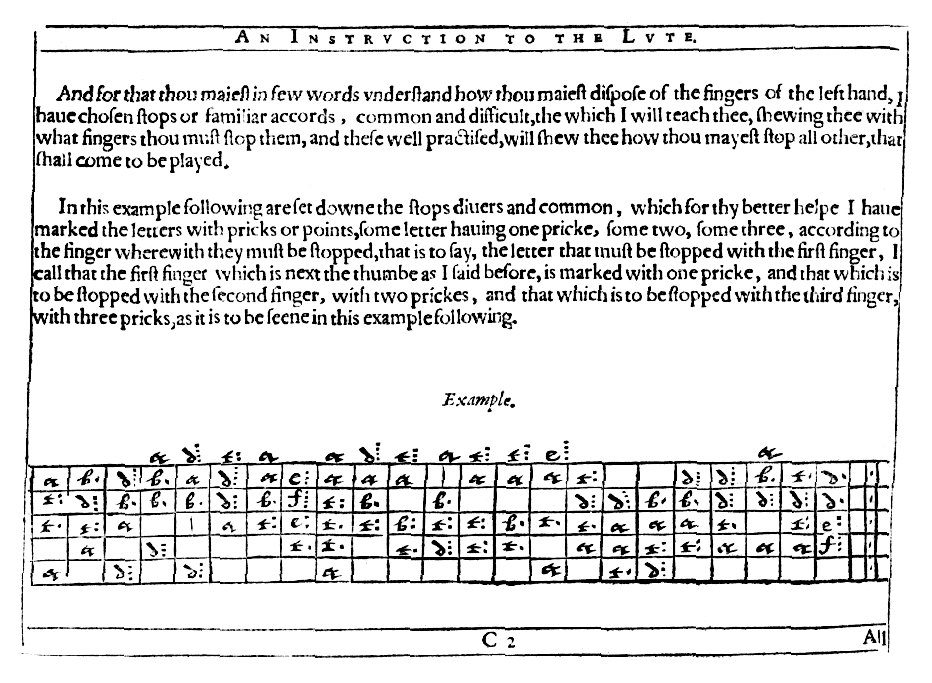 AN INSTRVCTION TO THE LVTE.
And for that thou maieſt in few words vnderſtand how thou maieſt diſpoſe of the fingers of the left hand, I
haue choſen ſtops or familiar accords, common and difficult, the which I will teach thee, ſhewing thee with
what fingers thou muſt ſtop them, and theſe well practiſed, will ſhew thee how thou mayeſt ſtop all other, that
ſhall come to be played.
In this example following are ſet downe the ſtops diuers and common, which for thy better helpe I haue
marked the letters with pricks or points, ſome letter hauing one pricke, ſome two, ſome three, according to
the finger wherewith they muſt be ſtopped, that is to ſay, the letter that muſt be ſtopped with the firſt finger, I
call that the firſt finger which is next the thumbe as I ſaid before, is marked with one pricke, and that which is
to be ſtopped with the ſecond finger, with two prickes, and that which is to be ſtopped with the third finger,
with three pricks, as it is to be ſeene in this example following.
Example.
C 2
All